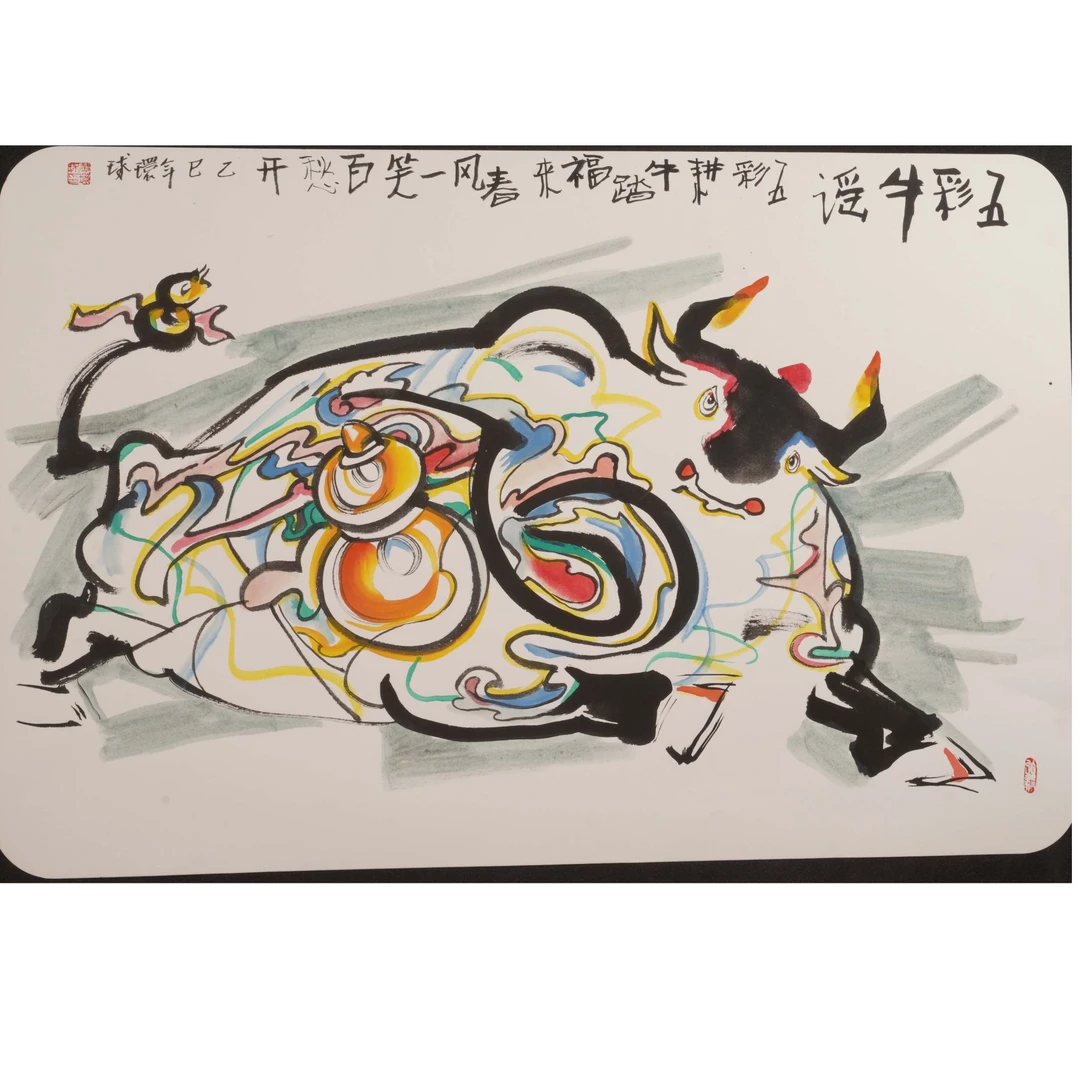 五彩牛谣
五彩耕牛踏福来春风一笑百愁开
乙巳年環球